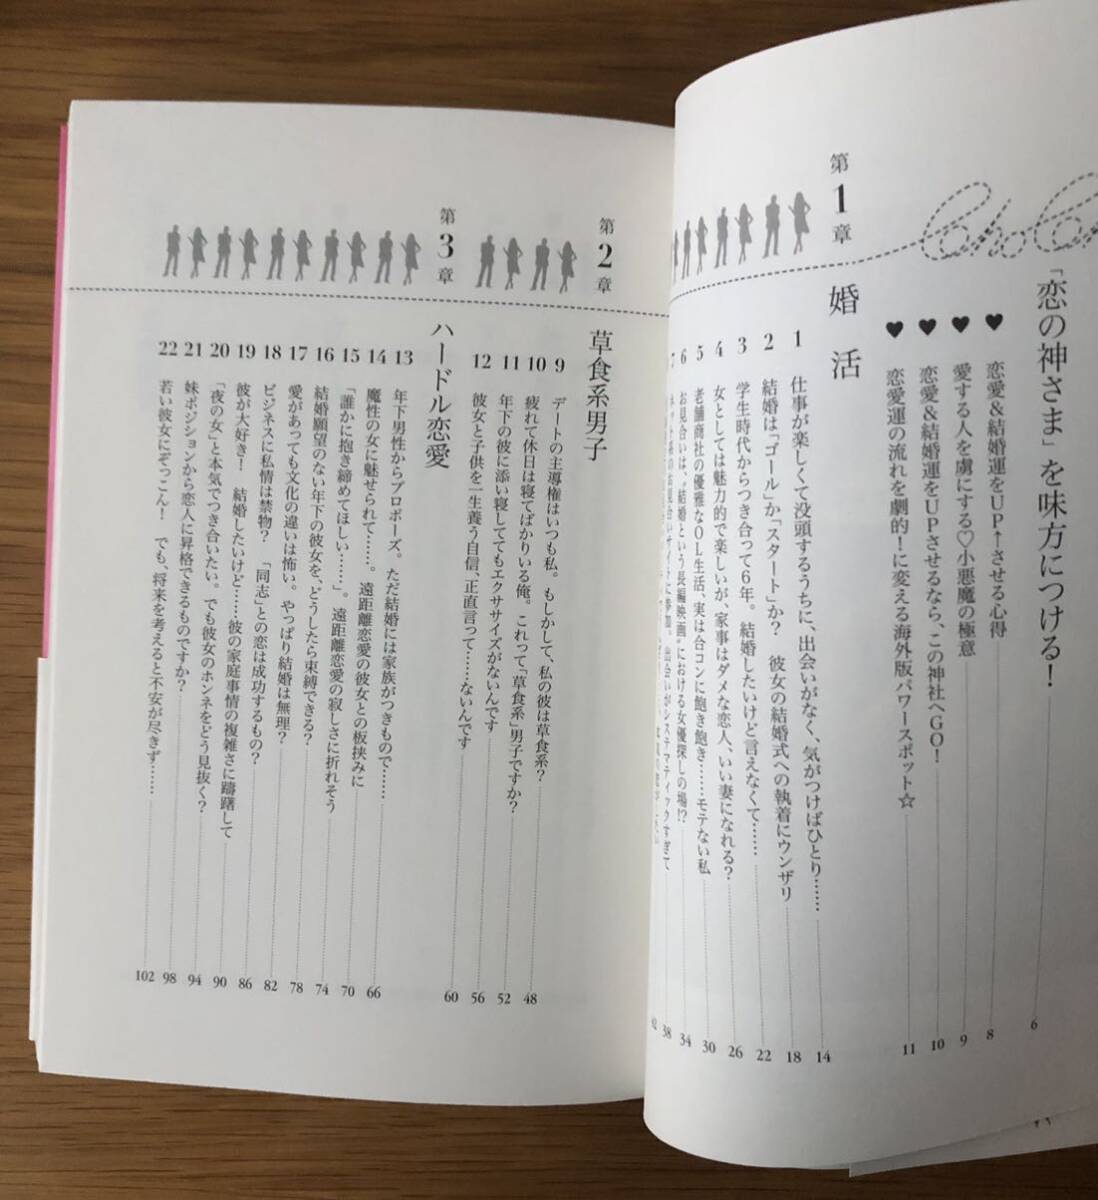 「恋の神さま」を味方につける！ 6
♥ 恋愛＆結婚運をUP↑させる心得 8
♥ 愛する人を虜にする♡小悪魔の極意 9
♥ 恋愛＆結婚運をUPさせるなら、この神社へGO！ 10
♥ 恋愛運の流れを劇的！に変える海外版パワースポット☆ 11
第1章 婚活
1 仕事が楽しくて没頭するうちに、出会いがなく、気がつけばひとり…… 14
2 結婚は「ゴール」か「スタート」か？ 彼女の結婚式への執着にウンザリ 18
3 学生時代からつき合って6年。結婚したいけど言えなくて…… 22
4 女としては魅力的で楽しいが、家事はダメな恋人、いい妻になれる？ 26
5 老舗商社の優雅なOL生活、実は合コンに飽き飽き……モテない私 30
6 お見合いは、“結婚という長編映画”における女優探しの場!? 34
7 ネット系のお見合いサイトに参加。出会いがシステマティックすぎて 38
42
第2章 草食系男子
9 デートの主導権はいつも私。もしかして、私の彼は草食系？ 48
10 疲れて休日は寝てばかりいる俺。これって「草食系」男子ですか？ 52
11 年下の彼に添い寝しててもエクササイズがないんです 56
12 彼女と子供を一生養う自信、正直言って……ないんです 60
第3章 ハードル恋愛
13 年下男性からプロポーズ。ただ結婚には家族がつきもので…… 66
14 魔性の女に魅せられて……。遠距離恋愛の彼女との板挟みに 70
15 「誰かに抱き締めてほしい……」。遠距離恋愛の寂しさに折れそう 74
16 結婚願望のない年下の彼女を、どうしたら束縛できる？ 78
17 愛があっても文化の違いは怖い。やっぱり結婚は無理？ 82
18 ビジネスに私情は禁物？ 「同志」との恋は成功するもの？ 86
19 彼が大好き！ 結婚したいけど……彼の家庭事情の複雑さに躊躇して 90
20 「夜の女」と本気でつき合いたい。でも彼女のホンネをどう見抜く？ 94
21 妹ポジションから恋人に昇格できるものですか？ 98
22 若い彼女にぞっこん！ でも、将来を考えると不安が尽きず…… 102